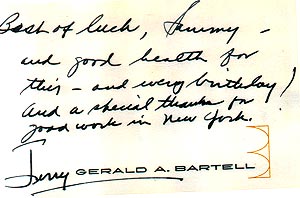 Best of luck, Sammy –
and good health for
this – and every birthday!
And a special thanks for
good work in New York.
Jerry GERALD A. BARTELL